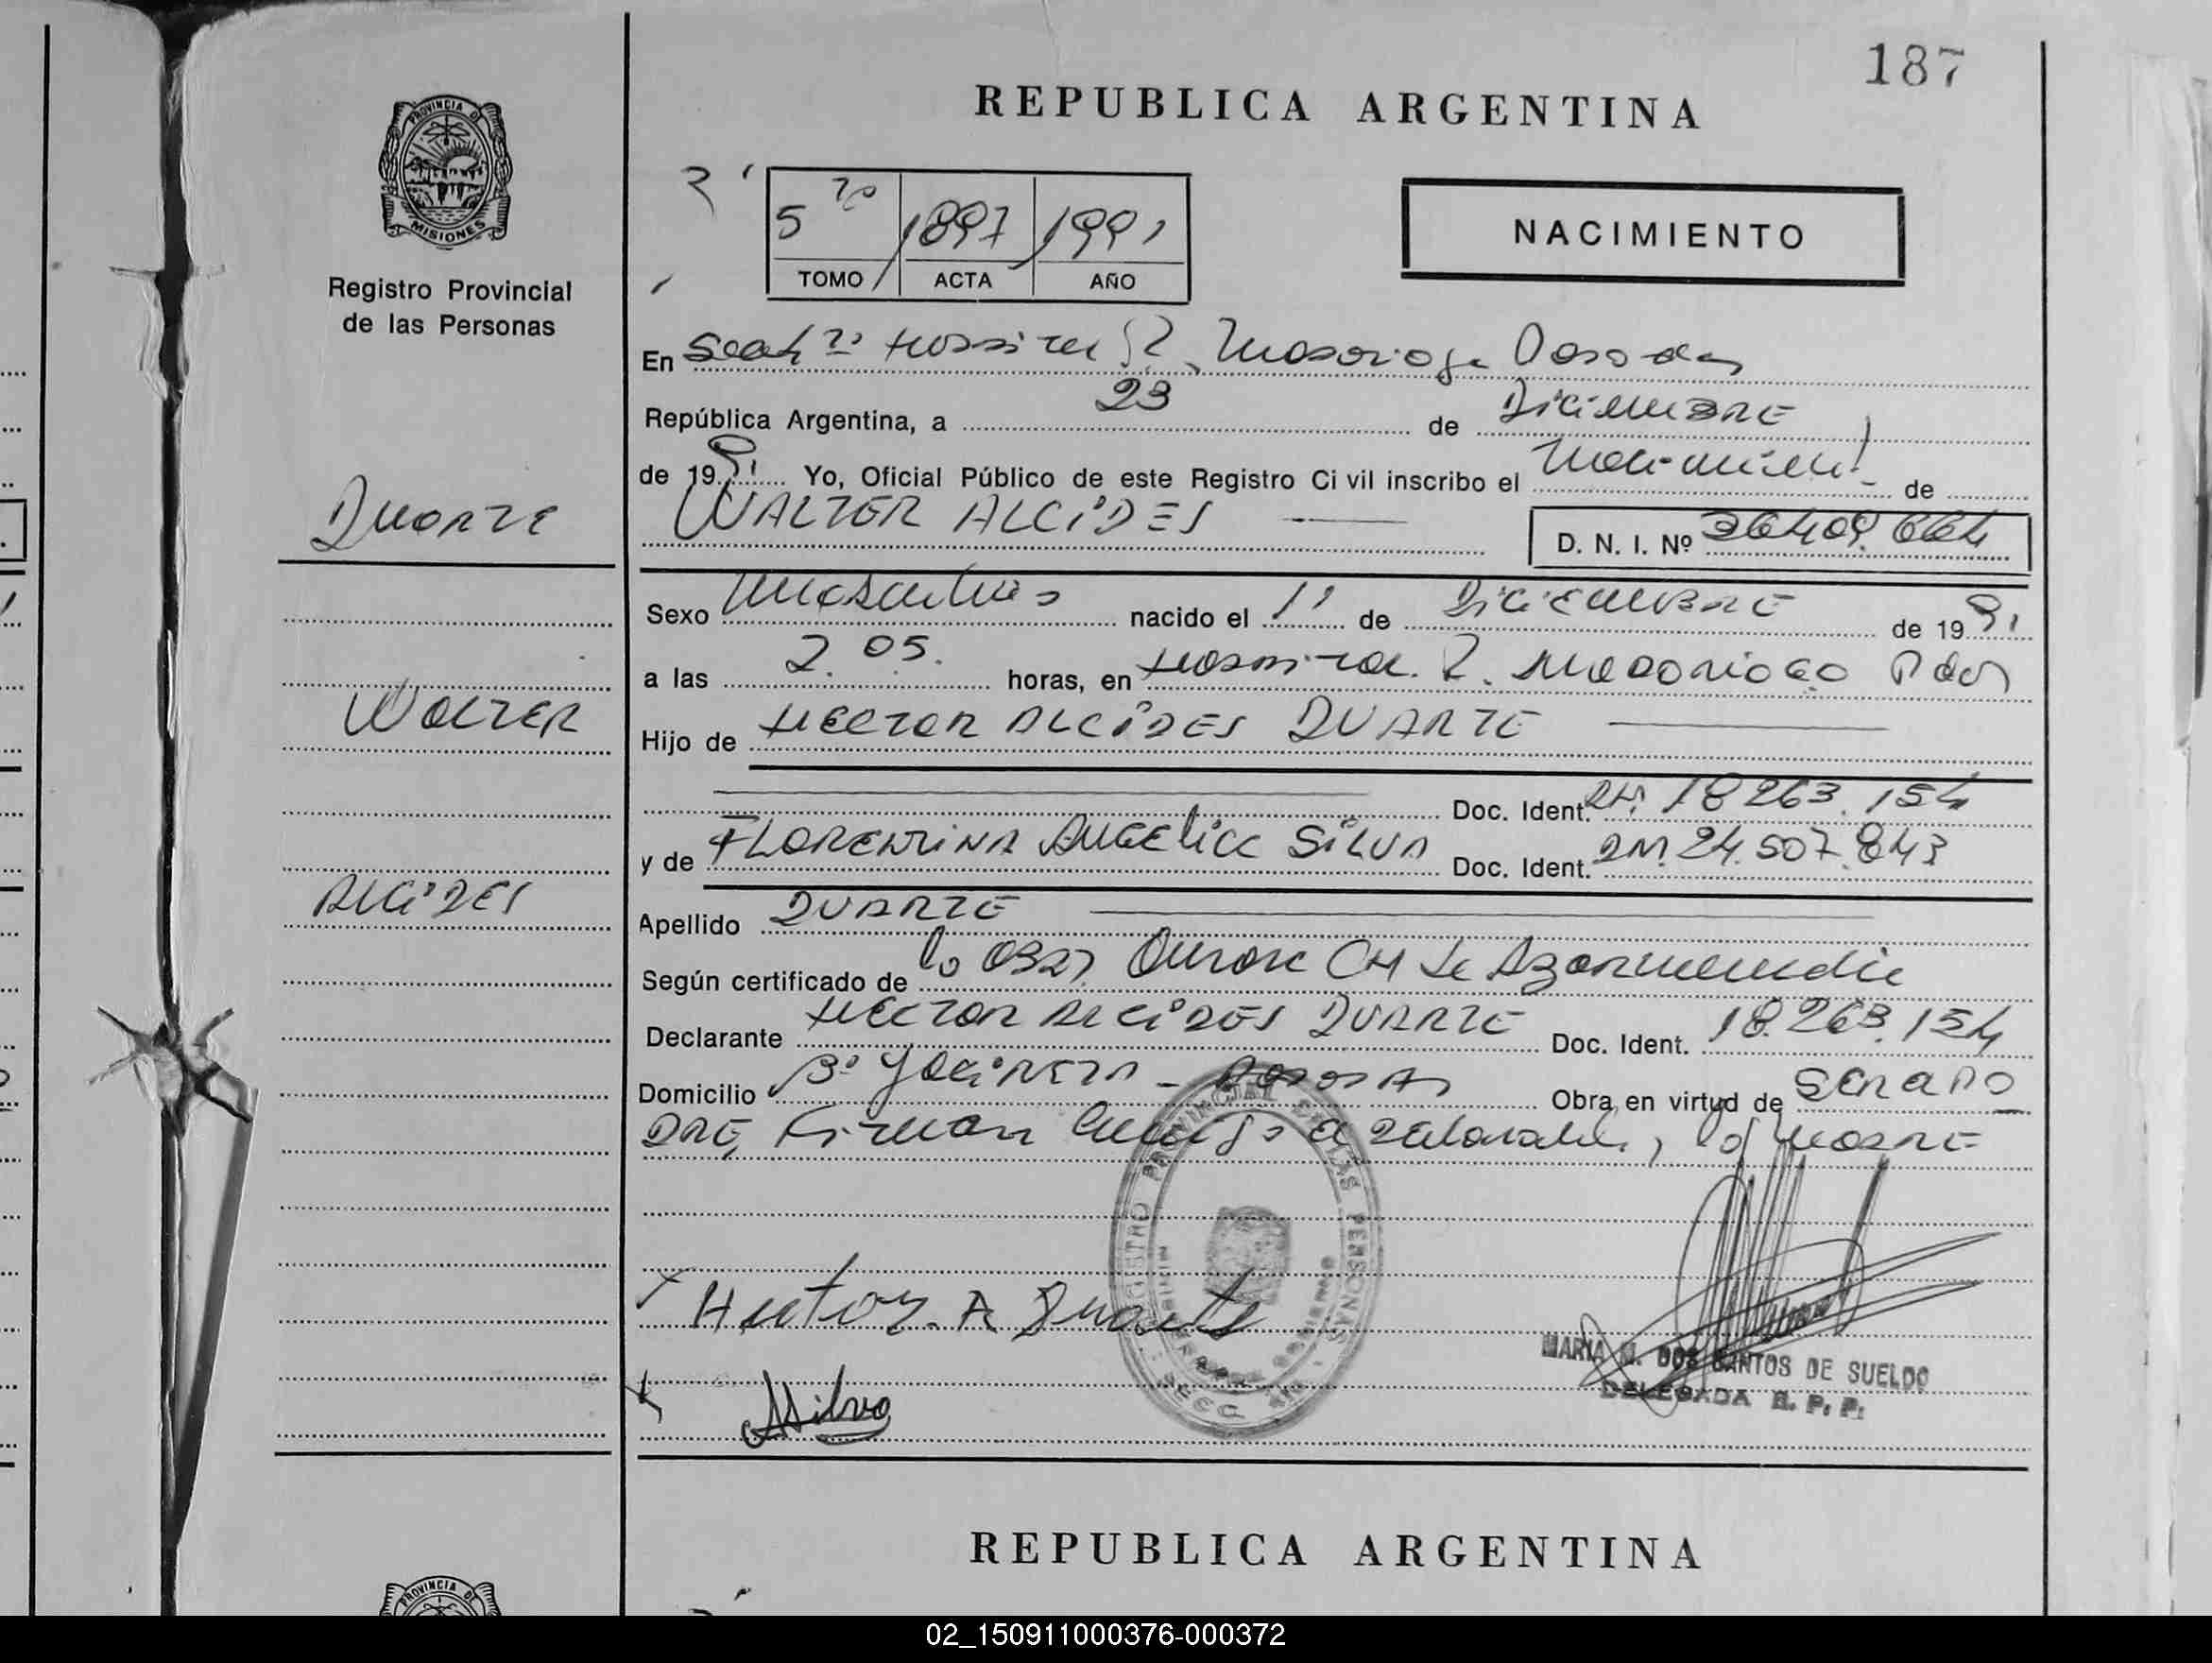 187
REPUBLICA ARGENTINA
PROVINCIA DE
MISIONES
Registro Provincial
de las Personas
5to 1897 1991
TOMO ACTA AÑO
NACIMIENTO
En Secc 7a Hospital R. Madariaga Posadas
República Argentina, a 23 de DiciemBRE
de 1991 Yo, Oficial Público de este Registro Civil inscribo el Nacimient de
Duarte
WALTER ALCIDES
D. N. I. Nº 36409.664
Sexo Masculino nacido el 11 de DiciEMBRE de 1991
a las 2.05. horas, en Hospital. R. Madariaga Pdas
Walter
Hijo de HECTOR ALCIDES DUARTE
Doc. Ident. DNI. 18263.154
y de FLORENTINA ANGElica SiLVA Doc. Ident. DNI. 24.507.843
ALCIDES
Apellido DUARTE
Según certificado de la Obst. Aurora CH de Azarmendia
Declarante HECTOR ALCIDES DUARTE Doc. Ident. 18.263.154
Domicilio Bº YACIRETA - POSADAS Obra en virtud de SER EL PA
DRE, Firman conmigo el declarante, la MADRE
REGISTRO PROVINCIAL DE LAS PERSONAS
Hector. A Duarte
ASilva
MARIA DOS SANTOS DE SUELDO
DELEGADA R. P. P.
REPUBLICA ARGENTINA
PROVINCIA DE
02_150911000376-000372